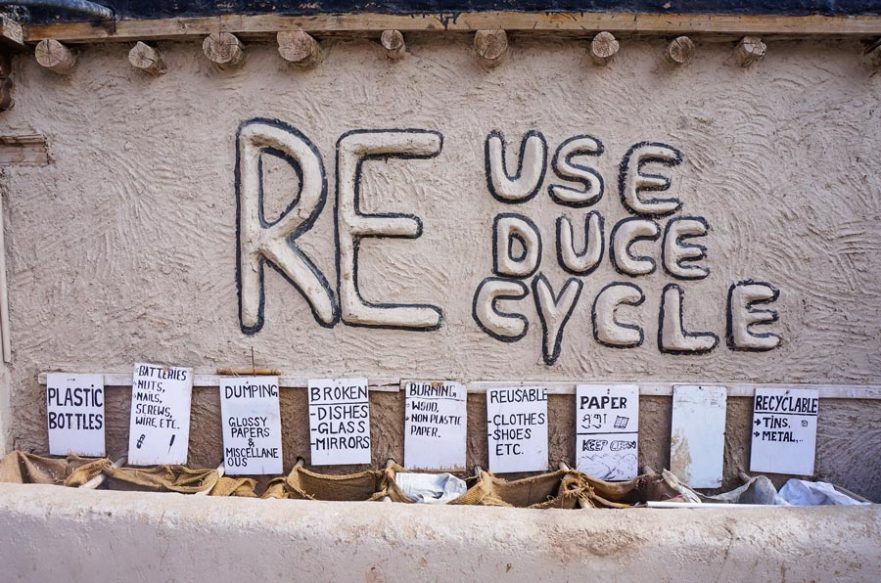 RE
USE
DUCE
CYCLE
PLASTIC
BOTTLES
BATTERIES
NUTS,
NAILS,
SCREWS,
WIRE, ETC.
DUMPING
GLOSSY
PAPERS
&
MISCELLANE
OUS
BROKEN
-DISHES
-GLASS
-MIRRORS
BURNING
- WOOD,
- NON PLASTIC
PAPER.
REUSABLE
-CLOTHES
-SHOES
ETC.
PAPER
KEEP
RECYCLABLE
→ TINS,
→ METAL,..